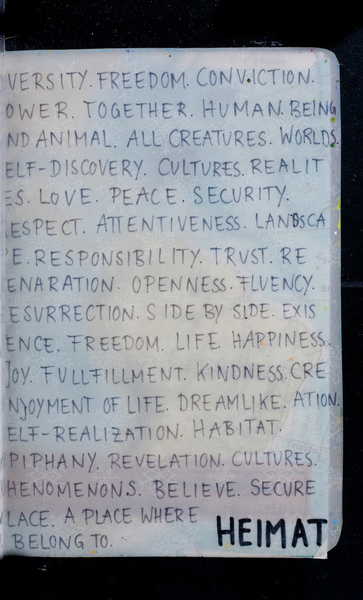 VERSITY. FREEDOM. CONVICTION.
OWER. TOGETHER. HUMAN. BEING
ND ANIMAL. ALL CREATURES. WORLDS.
ELF-DISCOVERY. CULTURES. REALIT
ES. LOVE. PEACE. SECURITY.
ESPECT. ATTENTIVENESS. LANDSCA
E. RESPONSIBILITY. TRUST. RE
ENARATION. OPENNESS. FLUENCY.
ESURRECTION. SIDE BY SIDE. EXIS
ENCE. FREEDOM. LIFE. HAPPINESS.
JOY. FULLFILLMENT. KINDNESS. CRE
NJOYMENT OF LIFE. DREAMLIKE. ATION.
ELF-REALIZATION. HABITAT.
PIPHANY. REVELATION. CULTURES.
HENOMENONS. BELIEVE. SECURE
LACE. A PLACE WHERE
BELONG TO.
HEIMAT